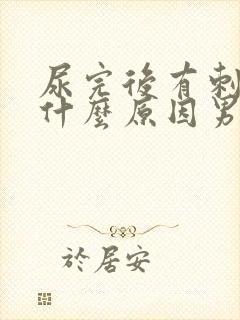 尿完後有刺
什麼原因男
於居安